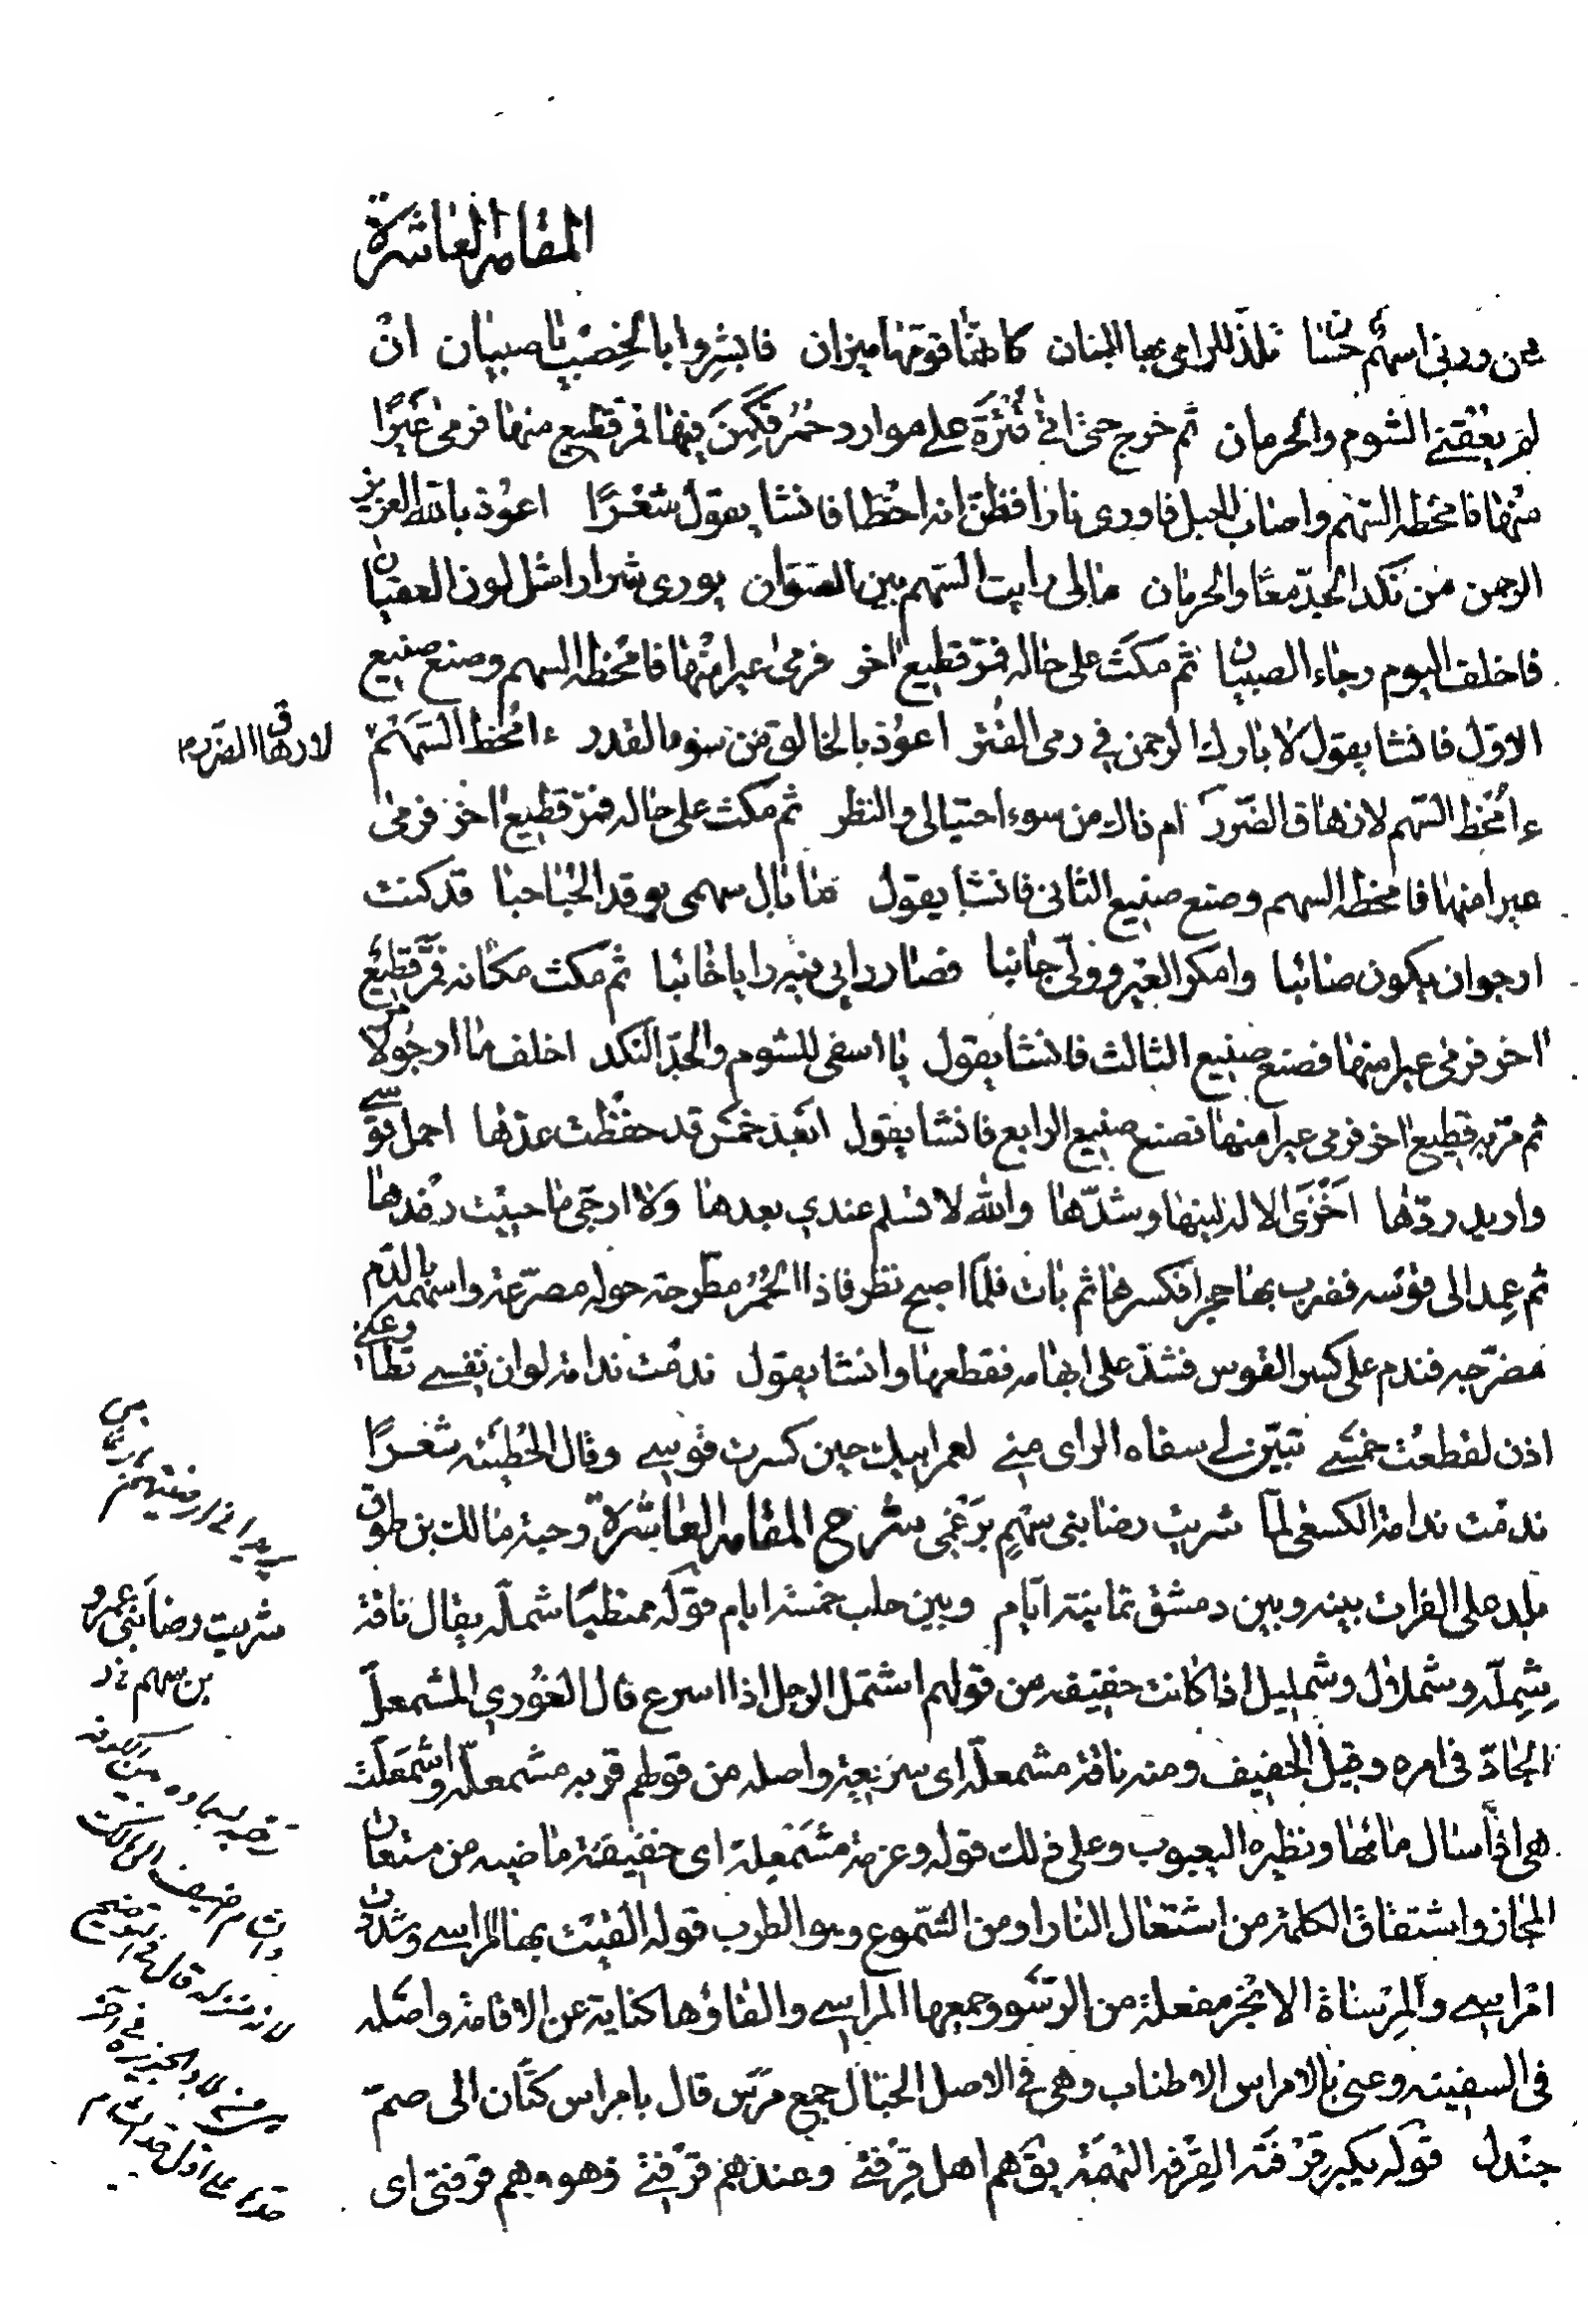 المقامة العاشرة
هن وربي اسهم حسان تلذ للرامي بها البنان كانما قومها ميزان فابشروا بالخصب يا صبيان ان
لم يعقني الشوم والحرمان ثم خرج حتى اتى قترة على موارد حمر فكمن فيها فمر قطيع منها فرمى عيرًا
منها فامخطه السهم واصاب الجبل فاورى نارا فظن انه اخطا فانشا يقول شعرًا اعوذ بالله العزيز
الرحمن من نكد الجد معًا والحرمان مالي رايت السهم بين الصوان يورى شرارا مثل لون العقيان
فاخلف اليوم رجاء الصبيان ثم مكث على حاله فمر قطيع اخر فرمى عيرا منها فامخطه السهم وصنع صنيع
الاول فانشا يقول لا بارك الرحمن في رمى القتر اعوذ بالخالق من سوء القدر ءامخط السهم
لارهاق الضرر م
ءامخط السهم لارهاق الضرر ام ذاك من سوء احتيالي والنظر ثم مكث على حاله فمر قطيع اخر فرمى
عيرا منها فامخطه السهم وصنع صنيع الثاني فانشا يقول ما بال سهمى يوقد الحباحبا قد كنت
ارجو ان يكون صائبا وامكن العير وولى جانبا فصار رايي فيه رايا خائبا ثم مكث مكانه فمر قطيع
اخر فرمى عيرا منها فصنع صنيع الثالث فانشا يقول يا اسفى للشوم والجد النكد اخلف ما ارجو لا
ثم مر به قطيع اخر فرمى عيرا منها فصنع صنيع الرابع فانشا يقول ابعد خمس قد حفظت عدها احمل قوسي
واريد ردها اخزى الاله لينها وشدها والله لا تسلم عندي بعدها ولا ارجى ما حييت رفدها
ثم عمد الى قوسه فضرب بها حجرا فكسرها ثم بات فلما اصبح نظر فاذا الحمر مطرحة حوله مصرعة واسهمه بالدم
مضرجه فندم على كسر القوس فشد على ابهامه فقطعها وانشا يقول ندمت ندامة لو ان نفسي تطاوعني
اذن لقطعت خمسي تبين لي سفاه الراى مني لعمر ابيك حين كسرت قوسي وقال الحطيئه شعرًا
ندمت ندامة الكسعي لما شريت رضا بني سهم برغمي شرح المقامة العاشرة رحبة مالك بن طوق
بلد على الفرات بينه وبين دمشق ثمانية ايام وبين حلب خمسة ايام قوله ممتطيًا شملة يقال ناقة
شريت رضا بني عمرو
بن سهم
شملة وشملال وشمليل اذا كانت خفيفه من قولهم اشتمل الرجل اذا اسرع قال الغوري المشمعل
الجاد في امره وقيل الخفيف ومنه ناقة مشمعلة اى سريعة واصله من قولهم قربه مشمعلة واشمعلت
هي اذا سال ماؤها ونظيره اليعبوب وعلى ذلك قوله وعزمة مشمعلة اى خفيفة ماضيه من مستعان
المجاز واشتقاق الكلمة من اشتعال النار او من الشموع وهو الطرب قوله القيت بها المراسي وشددت
امراسي والمرساة الانجر مفعلة من الرسو وجمعها المراسي والقاؤها كناية عن الاقامة واصله
في السفينه وعنى بالامراس الاطناب وهي في الاصل الحبال جمع مرس قال بامراس كتان الى صم
جندل قوله يكبر قرفته القرفة التهمة يق هم اهل قرفتي وعندهم قرفتي وهو وهم قرفتي اى